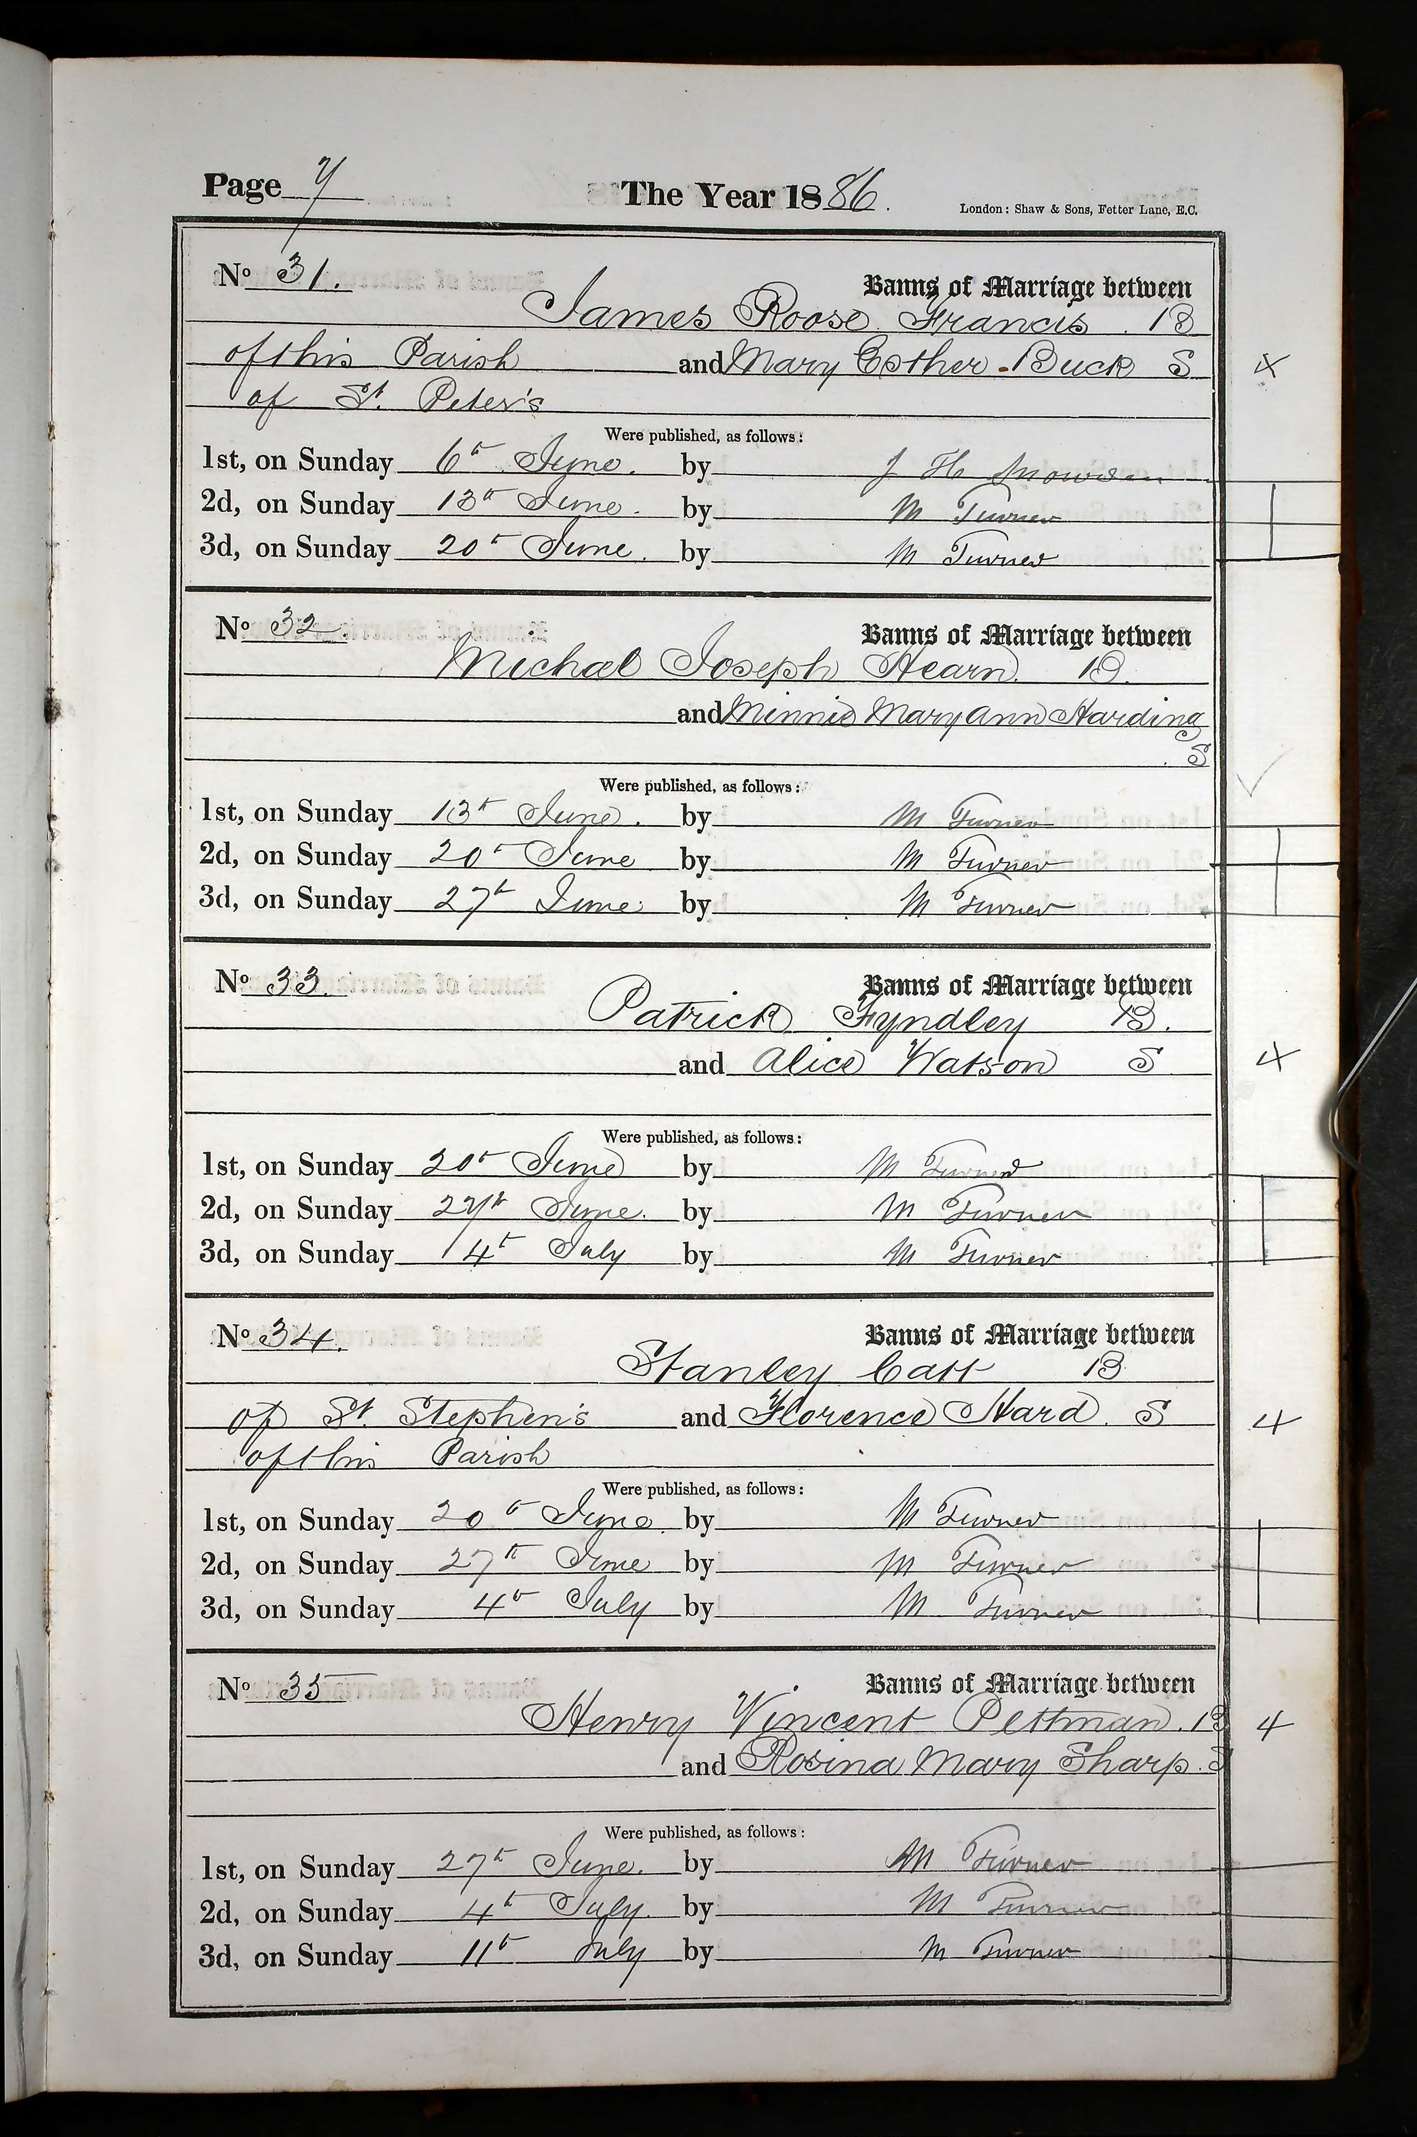 Page 7 The Year 1886.
London: Shaw & Sons, Fetter Lane, E.C.
No 31. Banns of Marriage between
James Roose Francis. B
of this Parish and Mary Esther Buck S
of St. Peter's
Were published, as follows:
1st, on Sunday 6th June. by J H Snowden
2d, on Sunday 13th June. by M Turner
3d, on Sunday 20th June. by M Turner
No 32. Banns of Marriage between
Michael Joseph Hearn. B.
and Minnie Mary Ann Harding
S
Were published, as follows:
1st, on Sunday 13th June. by M Turner
2d, on Sunday 20th June by M Turner
3d, on Sunday 27th June by M Turner
No 33. Banns of Marriage between
Patrick Fyndley B.
and Alice Watson S
Were published, as follows:
1st, on Sunday 20th June by M Turner
2d, on Sunday 27th June. by M Turner
3d, on Sunday 4th July by M Turner
No 34. Banns of Marriage between
Stanley Catt B
of St. Stephen's and Florence Hard. S
of this Parish
Were published, as follows:
1st, on Sunday 20th June. by M Turner
2d, on Sunday 27th June by M Turner
3d, on Sunday 4th July by M Turner
No 35 Banns of Marriage between
Henry Vincent Pettman. B
and Rosina Mary Sharp. S
Were published, as follows:
1st, on Sunday 27th June. by M Turner
2d, on Sunday 4th July. by M Turner
3d, on Sunday 11th July by M Turner